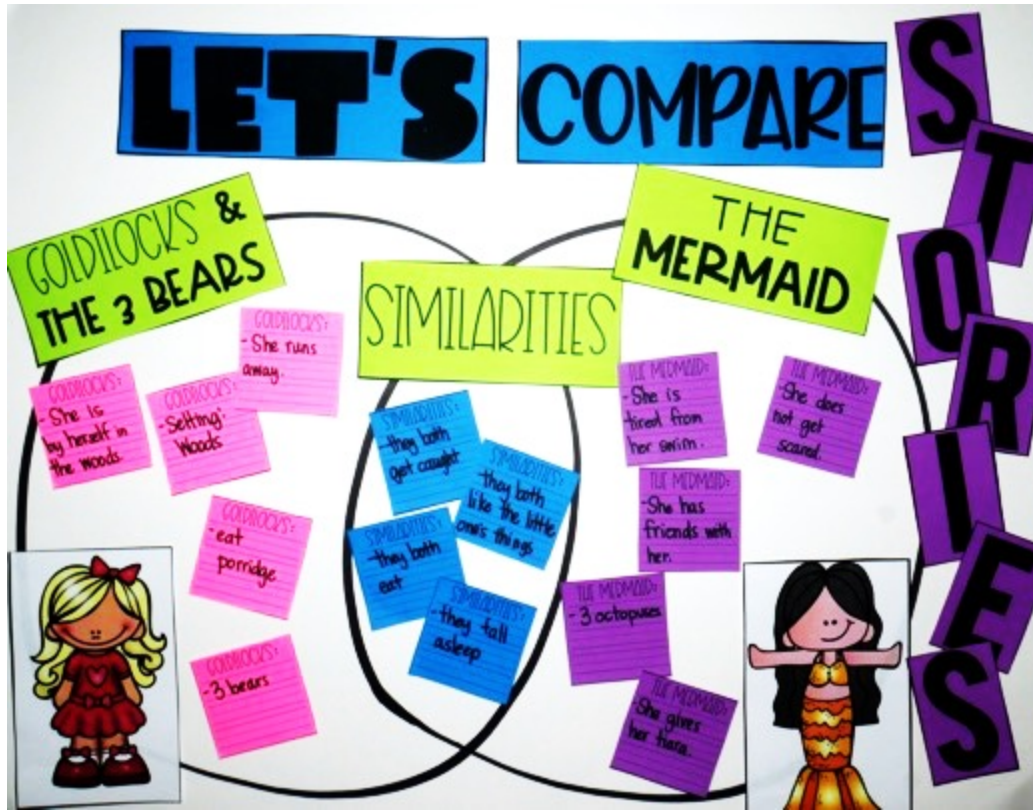 LET'S COMPARE
STORIES
GOLDILOCKS &
THE 3 BEARS
SIMILARITIES
THE
MERMAID
GOLDILOCKS:
- She runs
away.
GOLDILOCKS:
- She is
by herself in
the woods
GOLDILOCKS:
- Setting:
Woods
GOLDILOCKS:
- eat
porridge
GOLDILOCKS:
- 3 bears
SIMILARITIES:
- they both
get caught
SIMILARITIES:
- they both
like the little
one's things
SIMILARITIES:
- they both
eat
SIMILARITIES:
- they fall
asleep
THE MERMAID:
- She is
tired from
her swim.
THE MERMAID:
- She does
not get
scared.
THE MERMAID:
- She has
friends with
her.
THE MERMAID:
- 3 octopuses
THE MERMAID:
- She gives
her tiara.